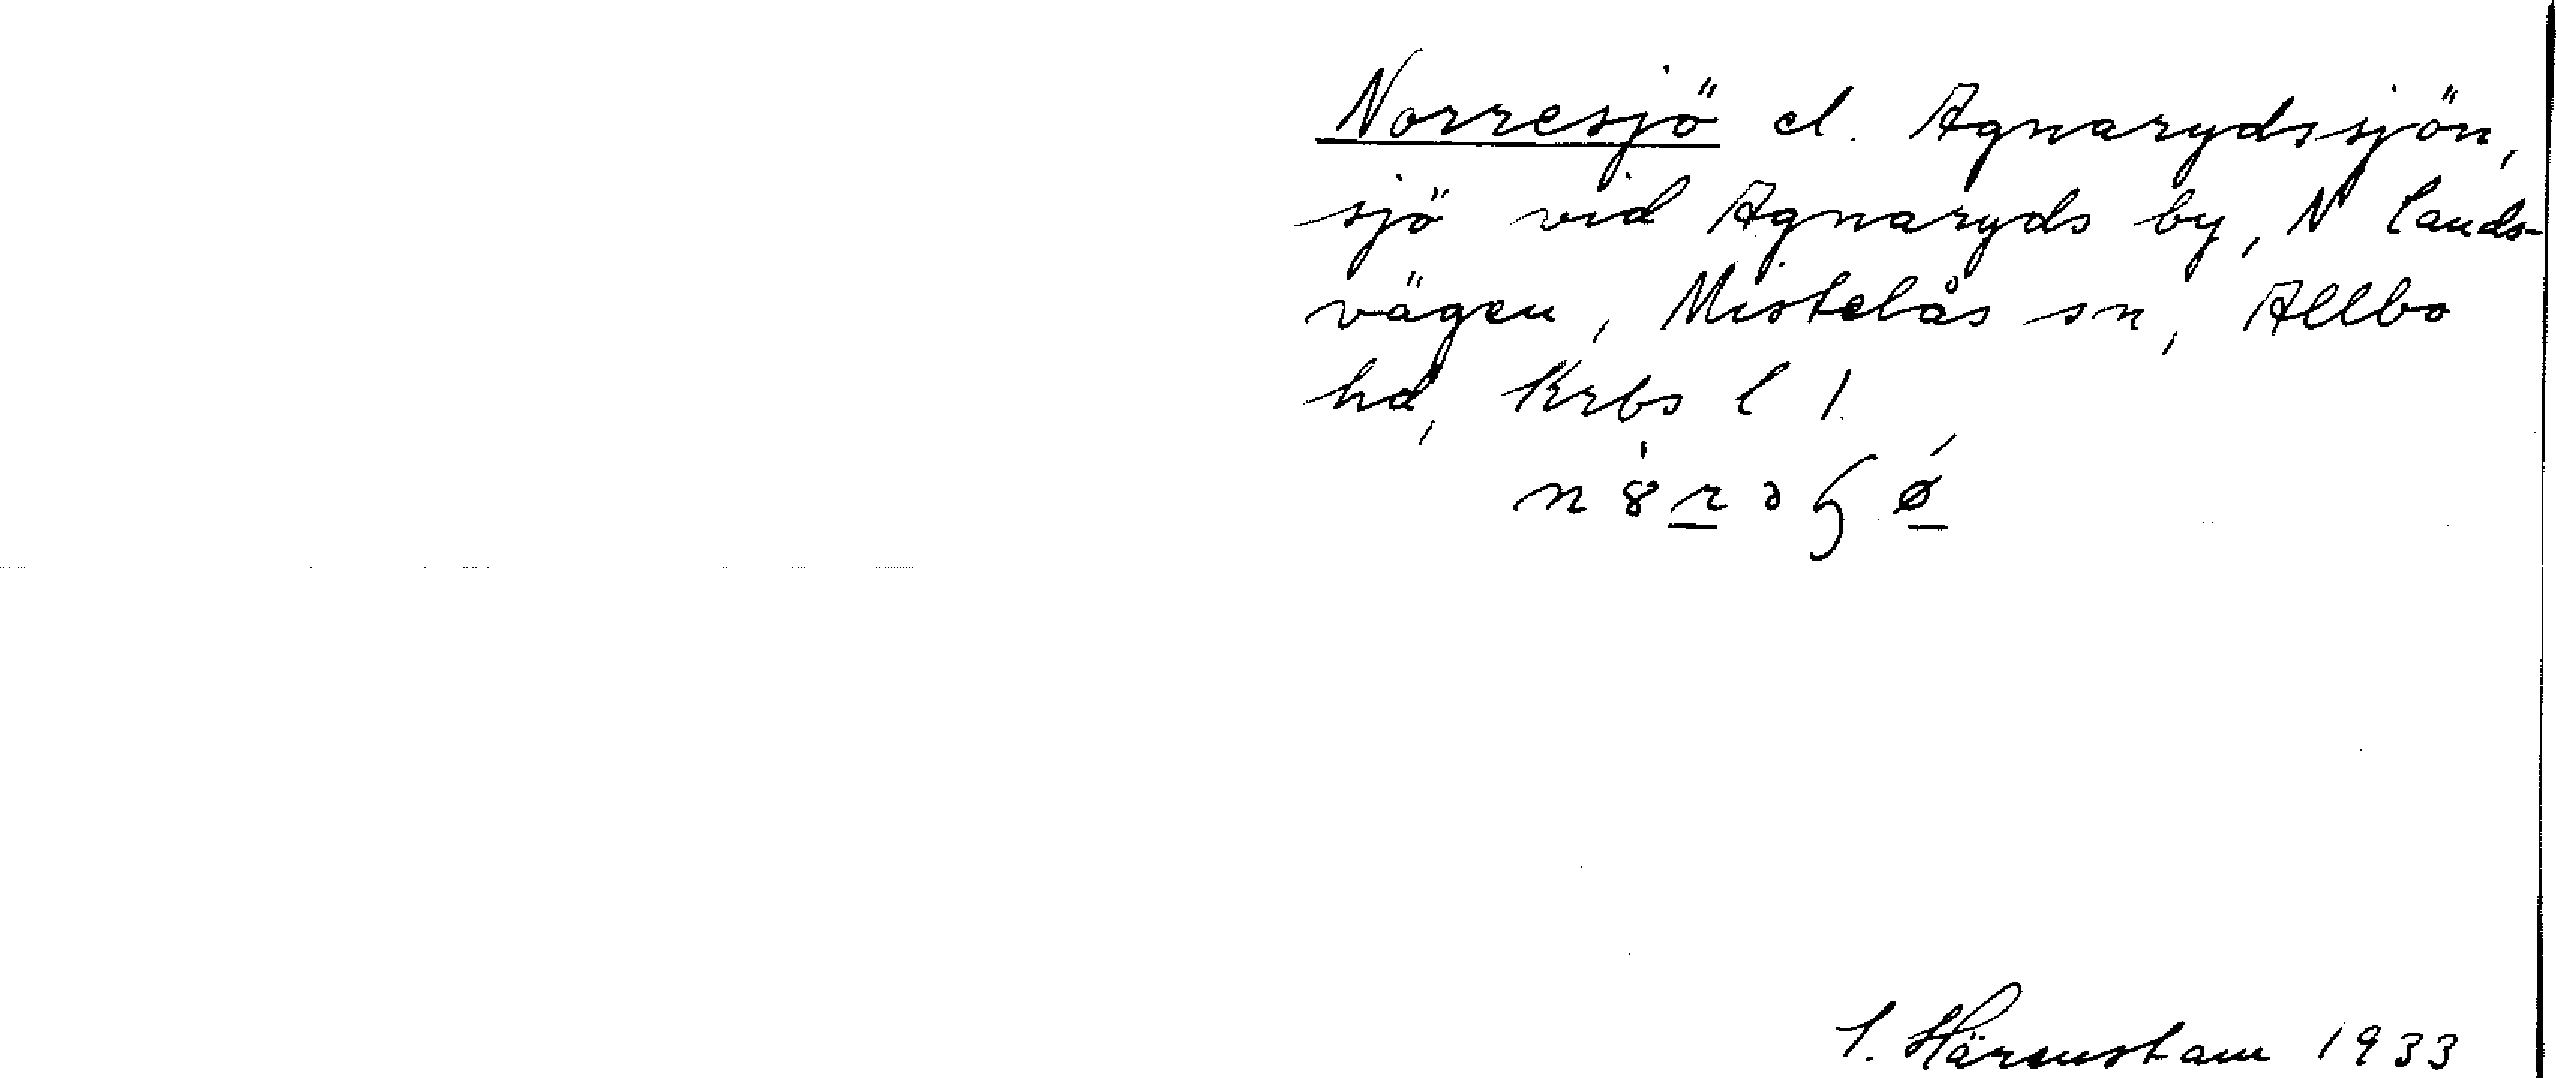 Norresjö el. Agnarydssjön,
sjö vid Agnaryds by, N lands-
vägen, Mistelås sn, Allbo
hd, Krbs l 1.
S. Härenstam 1933